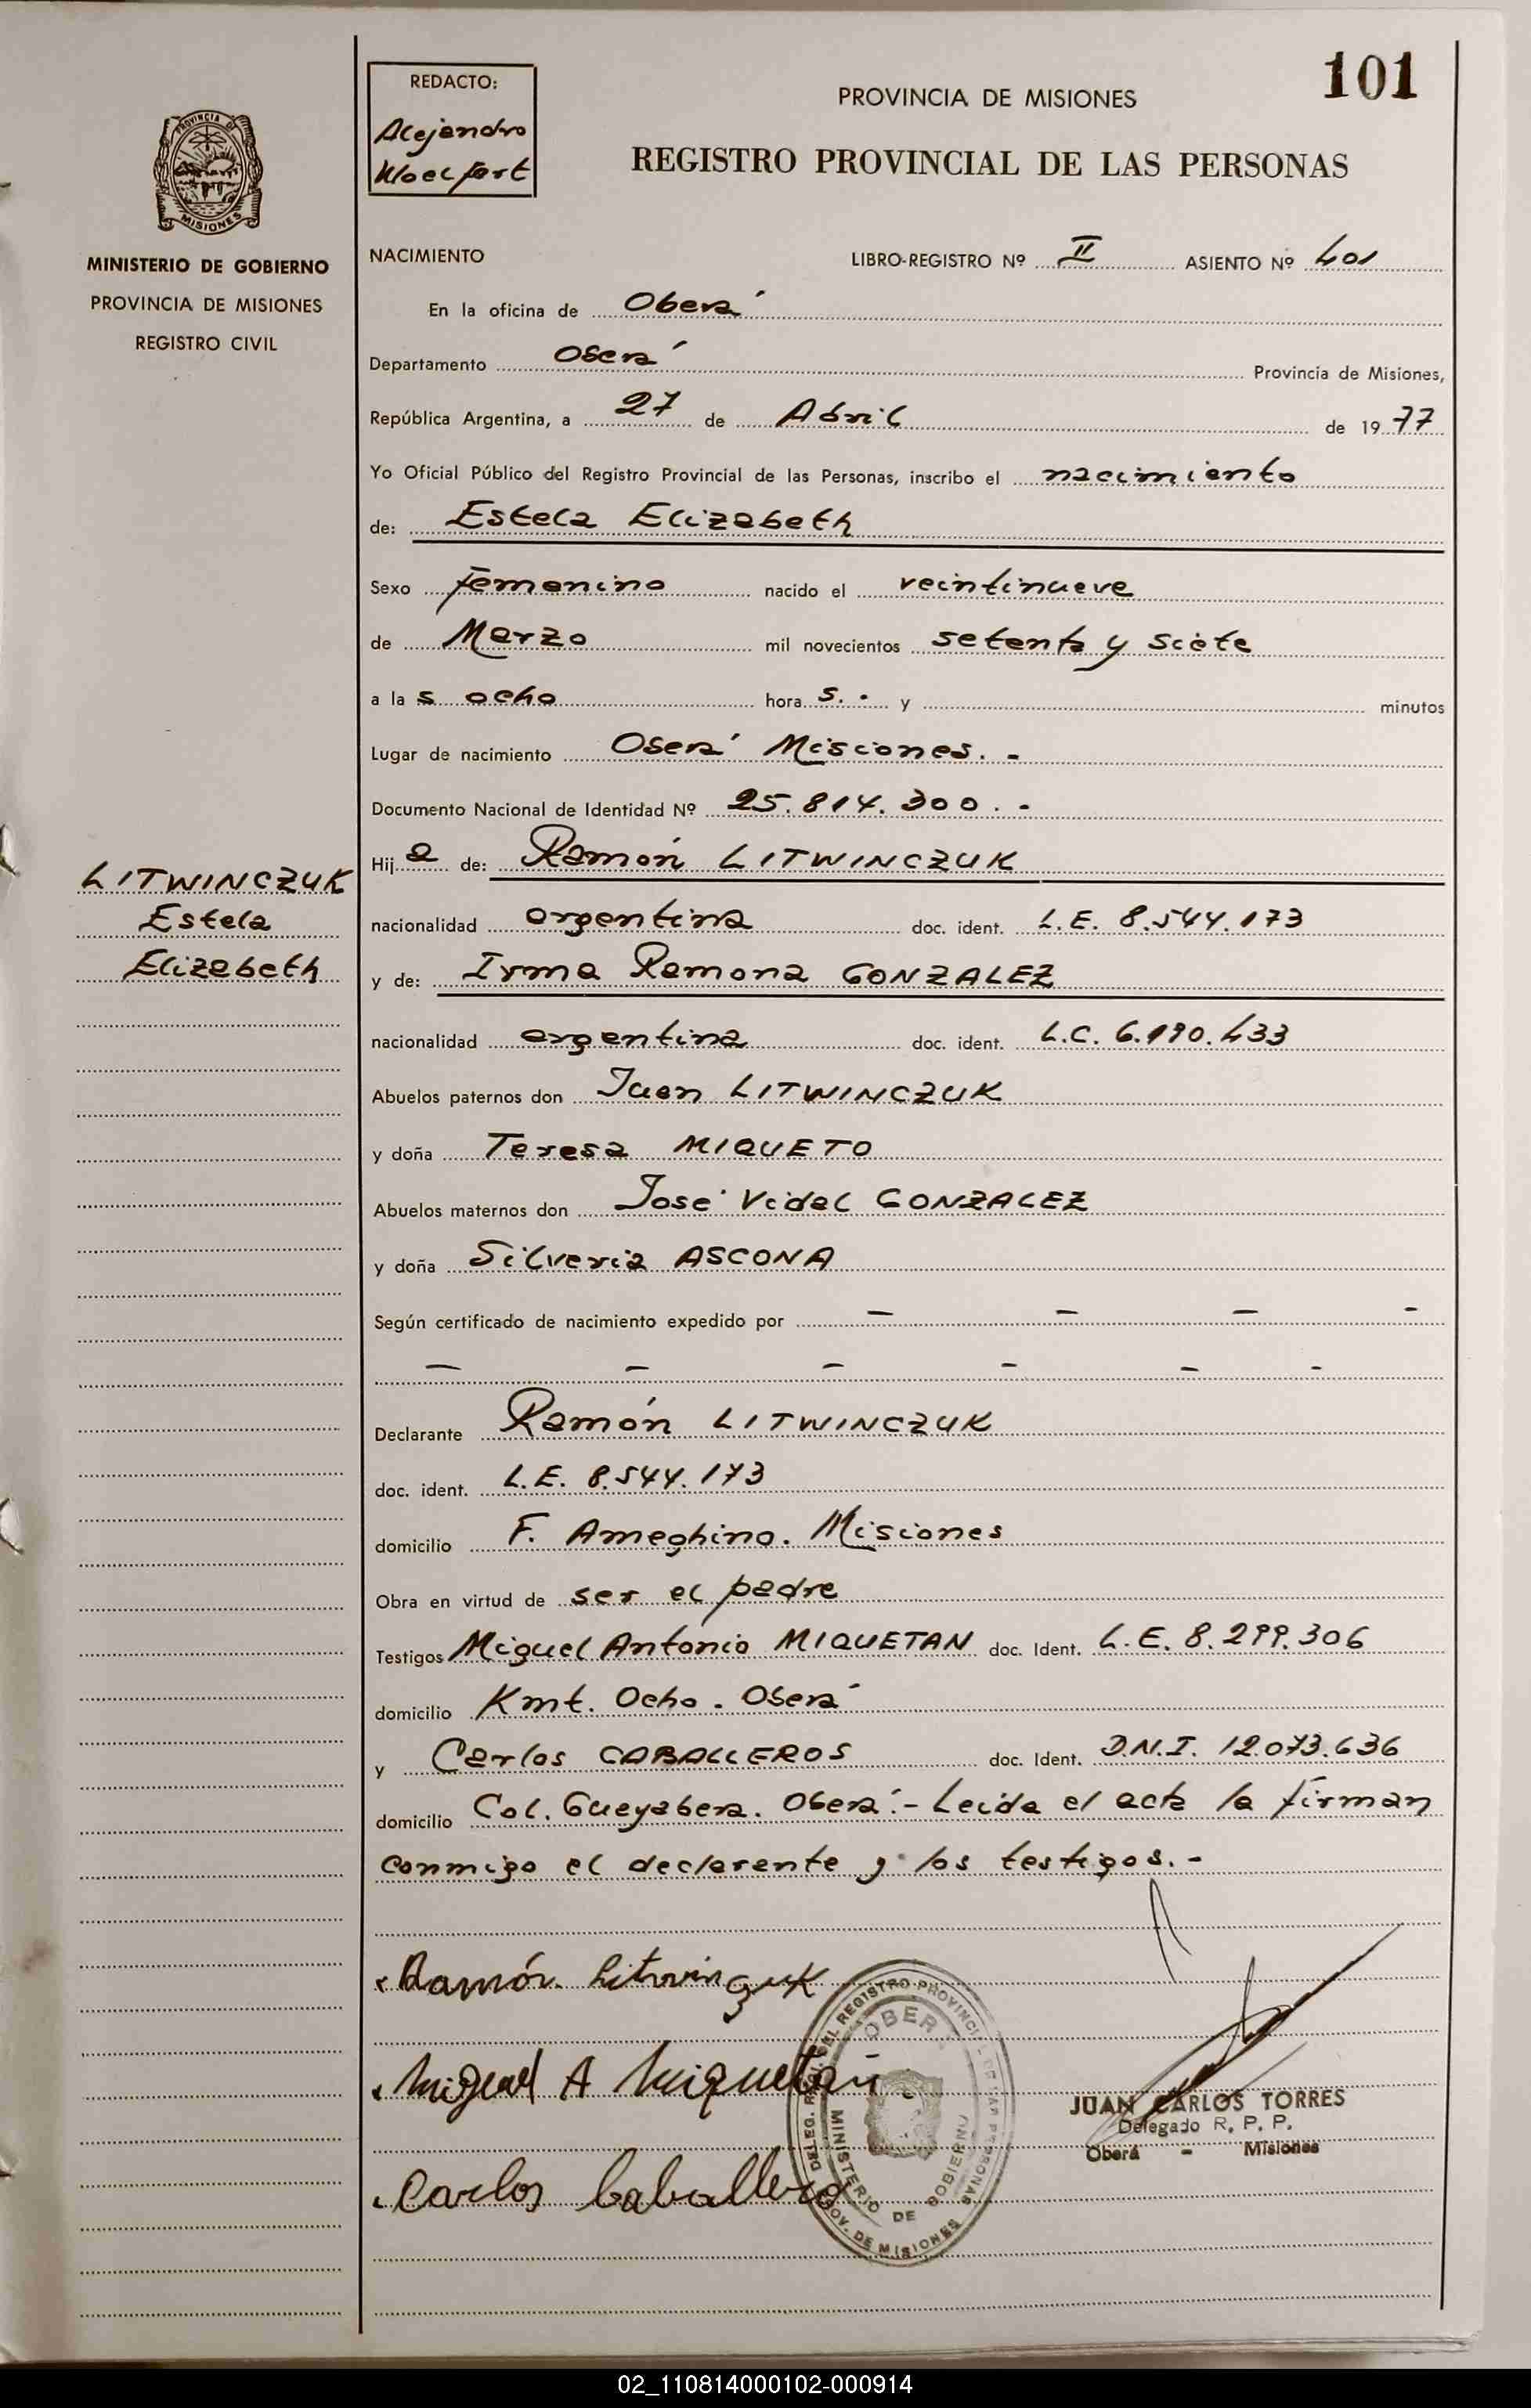 101
REDACTO:
Alejandro
PROVINCIA DE MISIONES
REGISTRO PROVINCIAL DE LAS PERSONAS
PROVINCIA DE
MISIONES
MINISTERIO DE GOBIERNO
PROVINCIA DE MISIONES
REGISTRO CIVIL
NACIMIENTO LIBRO-REGISTRO Nº II ASIENTO Nº 401
En la oficina de Oberá
Departamento Oberá Provincia de Misiones,
República Argentina, a 27 de Abril de 1977
Yo Oficial Público del Registro Provincial de las Personas, inscribo el nacimiento
de: Estela Elizabeth
Sexo femenino nacido el veintinueve
de Marzo mil novecientos setenta y siete
a las ocho horas. - y minutos
Lugar de nacimiento Oberá Misiones. -
Documento Nacional de Identidad Nº 25.814.300. -
Hija de: Ramón LITWINCZUK
LITWINCZUK
Estela
Elizabeth
nacionalidad argentina doc. ident. L.E. 8.544.173
y de: Irma Ramona GONZALEZ
nacionalidad argentina doc. ident. L.C. 6.190.433
Abuelos paternos don Juan LITWINCZUK
y doña Teresa MIQUETO
Abuelos maternos don José Vidal GONZALEZ
y doña Silveria ASCONA
Según certificado de nacimiento expedido por — — — -
— — — — — -
Declarante Ramón LITWINCZUK
doc. ident. L.E. 8.544.173
domicilio F. Ameghino. Misiones
Obra en virtud de ser el padre
Testigos Miguel Antonio MIQUETAN doc. Ident. L.E. 8.299.306
domicilio Kmt. Ocho. Oberá
y Carlos CABALLEROS doc. Ident. D.N.I. 12.073.636
domicilio Col. Gueyabera. Oberá.- Leida el acta la firman
conmigo el declarante y los testigos. -
Ramón Litwinczuk
Miguel A Miquetan
Carlos Caballero
OBERA
MINISTERIO DE GOBIERNO
GOV. DE MISIONES
JUAN CARLOS TORRES
Delegado R. P. P.
Oberá - Misiones
02_110814000102-000914